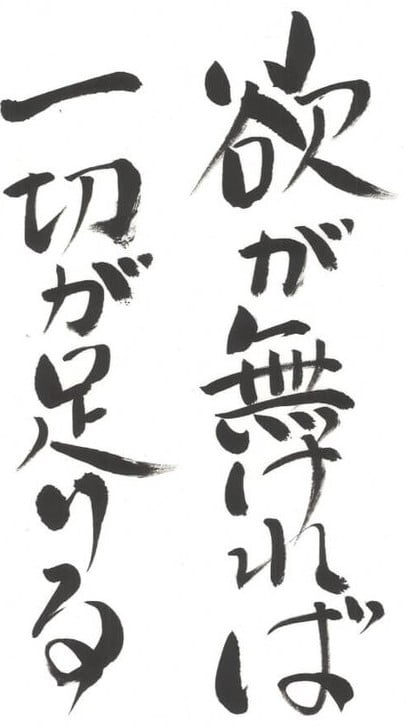 欲が無ければ
一切が足りる